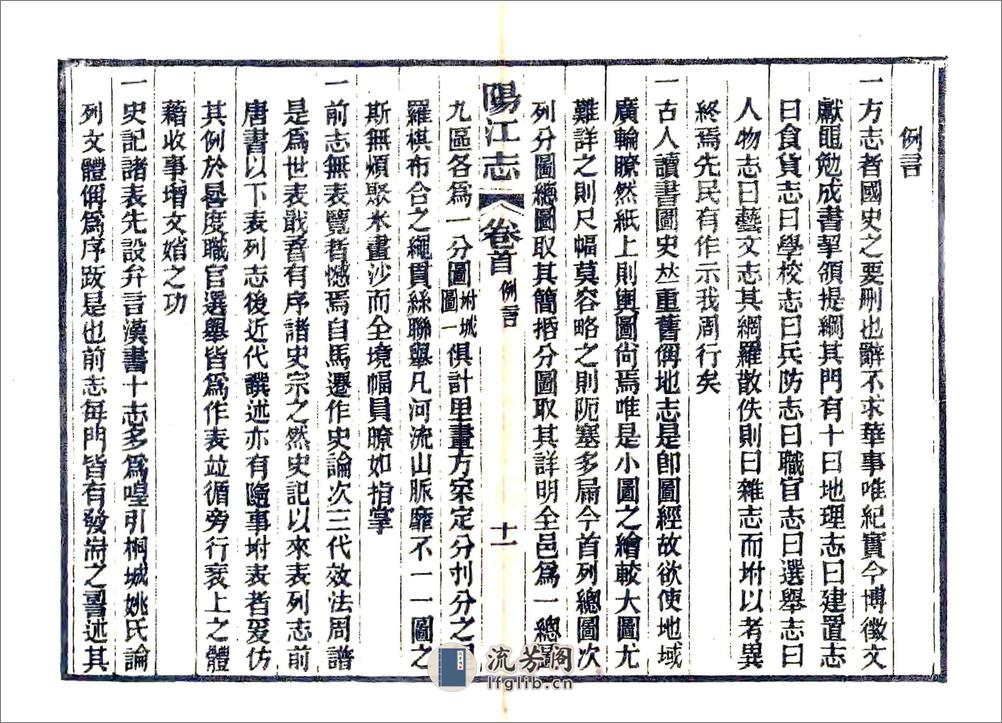 例言
一方志者國史之要刪也辭不求華事唯紀實今博徵文
獻黽勉成書挈領提綱其門有十曰地理志曰建置志
曰食貨志曰學校志曰兵防志曰職官志曰選舉志曰
人物志曰藝文志其網羅散佚則曰雜志而坿以考異
終焉先民有作示我周行矣
一古人讀書圖史竝重舊偁地志是卽圖經故欲使地域
廣輪瞭然紙上則輿圖尙焉唯是小圖之繪較大圖尤
難詳之則尺幅莫容略之則阨塞多屚今首列總圖次
列分圖總圖取其簡括分圖取其詳明全邑爲一總圖
陽江志 卷首 例言 十一
九區各爲一分圖坿城圖一俱計里畫方案定分刌分之
羅棋布合之繩貫絲聯舉凡河流山脈靡不一一圖之
斯無煩聚米畫沙而全境幅員瞭如指掌
一前志無表覽者憾焉自馬遷作史論次三代效法周譜
是爲世表戢孴有序諸史宗之然史記以來表列志前
唐書以下表列志後近代譔述亦有隨事坿表者爰仿
其例於晷度職官選舉皆爲作表竝循旁行衺上之體
藉收事增文媘之功
一史記諸表先設弁言漢書十志多爲喤引桐城姚氏論
列文體偁爲序跋是也前志每門皆有發耑之暑述其
流芳阁
lfglib.cn